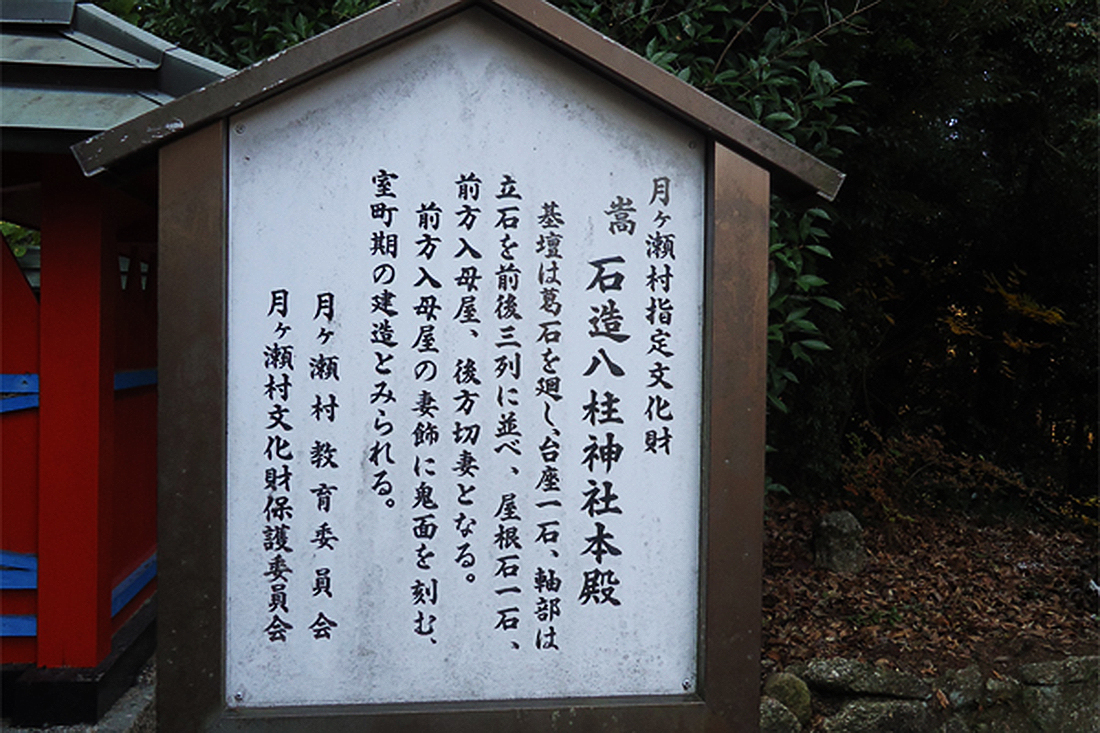 月ヶ瀬村指定文化財
嵩 石造八柱神社本殿
基壇は葛石を廻し、台座一石、軸部は
立石を前後三列に並べ、屋根石一石、
前方入母屋、後方切妻となる。
前方入母屋の妻飾に鬼面を刻む、
室町期の建造とみられる。
月ヶ瀬村教育委員会
月ヶ瀬村文化財保護委員会